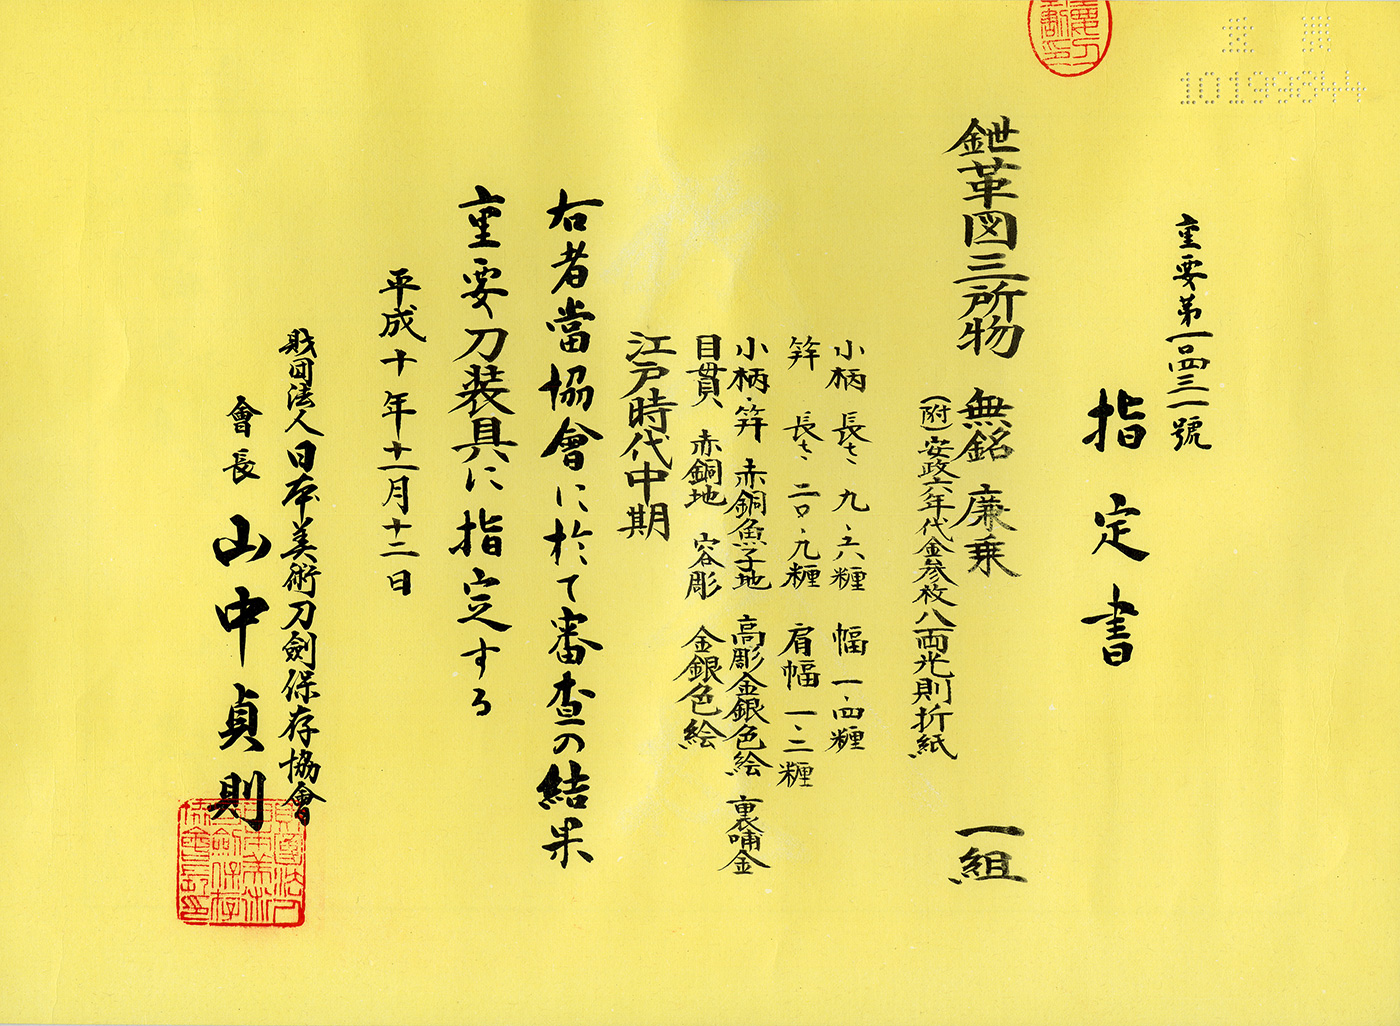 重要第一四三一號
指定書
鉄革図三所物 無銘 廉乗 一組
（附）安政六年代金参枚八両光則折紙
小柄 長さ 九・六糎 幅 一・四糎
笄 長さ 二〇・九糎 肩幅 一・二糎
小柄・笄 赤銅魚子地 高彫金銀色絵 裏哺金
目貫 赤銅地 容彫 金銀色絵
江戸時代中期
右者當協會に於て審査の結果
重要刀装具に指定する
平成十年十一月十二日
財団法人日本美術刀劍保存協會
會長 山中貞則
10199844